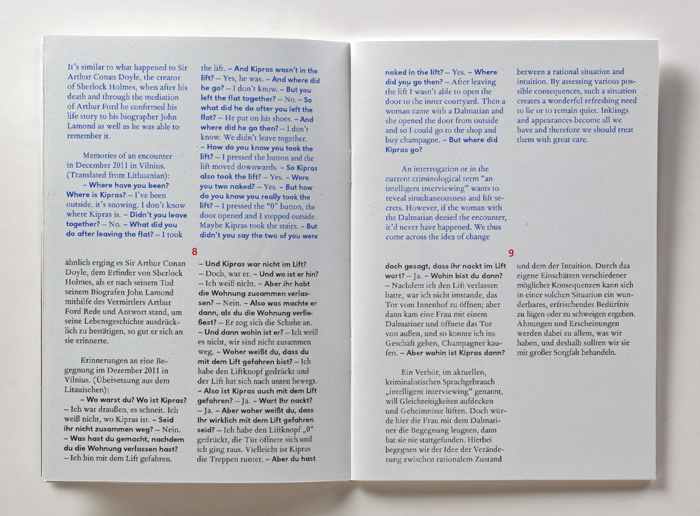 It's similar to what happened to Sir
Arthur Conan Doyle, the creator
of Sherlock Holmes, when after his
death and through the mediation
of Arthur Ford he confirmed his
life story to his biographer John
Lamond as well as he was able to
remember it.
Memories of an encounter
in December 2011 in Vilnius.
(Translated from Lithuanian):
– Where have you been?
Where is Kipras? – I've been
outside, it's snowing. I don't know
where Kipras is. – Didn't you leave
together? – No. – What did you
do after leaving the flat? – I took
the lift. – And Kipras wasn't in the
lift? – Yes, he was. – And where did
he go? – I don't know. – But you
left the flat together? – No. – So
what did he do after you left the
flat? – He put on his shoes. – And
where did he go then? – I don't
know. We didn't leave together.
– How do you know you took the
lift? – I pressed the button and the
lift moved downwards. – So Kipras
also took the lift? – Yes. – Were
you two naked? – Yes. – But how
do you know you really took the
lift? – I pressed the "0" button, the
door opened and I stepped outside.
Maybe Kipras took the stairs. – But
didn't you say the two of you were
8
ähnlich erging es Sir Arthur Conan
Doyle, dem Erfinder von Sherlock
Holmes, als er nach seinem Tod
seinem Biografen John Lamond
mithilfe des Vermittlers Arthur
Ford Rede und Antwort stand, um
seine Lebensgeschichte ausdrück-
lich zu bestätigen, so gut er sich an
sie erinnerte.
Erinnerungen an eine Be-
gegnung im Dezember 2011 in
Vilnius. (Übersetzung aus dem
Litauischen):
– Wo warst du? Wo ist Kipras?
– Ich war draußen, es schneit. Ich
weiß nicht, wo Kipras ist. – Seid
ihr nicht zusammen weg? – Nein.
– Was hast du gemacht, nachdem
du die Wohnung verlassen hast?
– Ich bin mit dem Lift gefahren.
– Und Kipras war nicht im Lift?
– Doch, war er. – Und wo ist er hin?
– Ich weiß nicht. – Aber ihr habt
die Wohnung zusammen verlas-
sen? – Nein. – Also was machte er
dann, als du die Wohnung verlie-
ßest? – Er zog sich die Schuhe an.
– Und dann wohin ist er? – Ich weiß
es nicht, wir sind nicht zusammen
weg. – Woher weißt du, dass du
mit dem Lift gefahren bist? – Ich
habe den Liftknopf gedrückt und
der Lift hat sich nach unten bewegt.
– Also ist Kipras auch mit dem Lift
gefahren? – Ja. – Wart ihr nackt?
– Ja. – Aber woher weißt du, dass
ihr wirklich mit dem Lift gefahren
seid? – Ich habe den Liftknopf „0"
gedrückt, die Tür öffnete sich und
ich ging raus. Vielleicht ist Kipras
die Treppen runter. – Aber du hast
naked in the lift? – Yes. – Where
did you go then? – After leaving
the lift I wasn't able to open the
door to the inner courtyard. Then a
woman came with a Dalmatian and
she opened the door from outside
and so I could go to the shop and
buy champagne. – But where did
Kipras go?
An interrogation or in the
current criminological term "an
intelligent interviewing" wants to
reveal simultaneousness and lift se-
crets. However, if the woman with
the Dalmatian denied the encounter,
it'd never have happened. We thus
come across the idea of change
between a rational situation and
intuition. By assessing various pos-
sible consequences, such a situation
creates a wonderful refreshing need
to lie or to remain quiet. Inklings
and appearances become all we
have and therefore we should treat
them with great care.
9
doch gesagt, dass ihr nackt im Lift
wart? – Ja. – Wohin bist du dann?
– Nachdem ich den Lift verlassen
hatte, war ich nicht imstande, das
Tor vom Innenhof zu öffnen; aber
dann kam eine Frau mit einem
Dalmatiner und öffnete das Tor
von außen, und so konnte ich ins
Geschäft gehen, Champagner kau-
fen. – Aber wohin ist Kipras dann?
Ein Verhör, im aktuellen,
kriminalistischen Sprachgebrauch
„intelligent interviewing" genannt,
will Gleichzeitigkeiten aufdecken
und Geheimnisse lüften. Doch wür-
de hier die Frau mit dem Dalmati-
ner die Begegnung leugnen, dann
hat sie nie stattgefunden. Hierbei
begegnen wir der Idee der Verände-
rung zwischen rationalem Zustand
und dem der Intuition. Durch das
eigene Einschätzen verschiedener
möglicher Konsequenzen kann sich
in einer solchen Situation ein wun-
derbares, erfrischendes Bedürfnis
zu lügen oder zu schweigen ergeben.
Ahnungen und Erscheinungen
werden dabei zu allem, was wir
haben, und deshalb sollten wir sie
mit großer Sorgfalt behandeln.